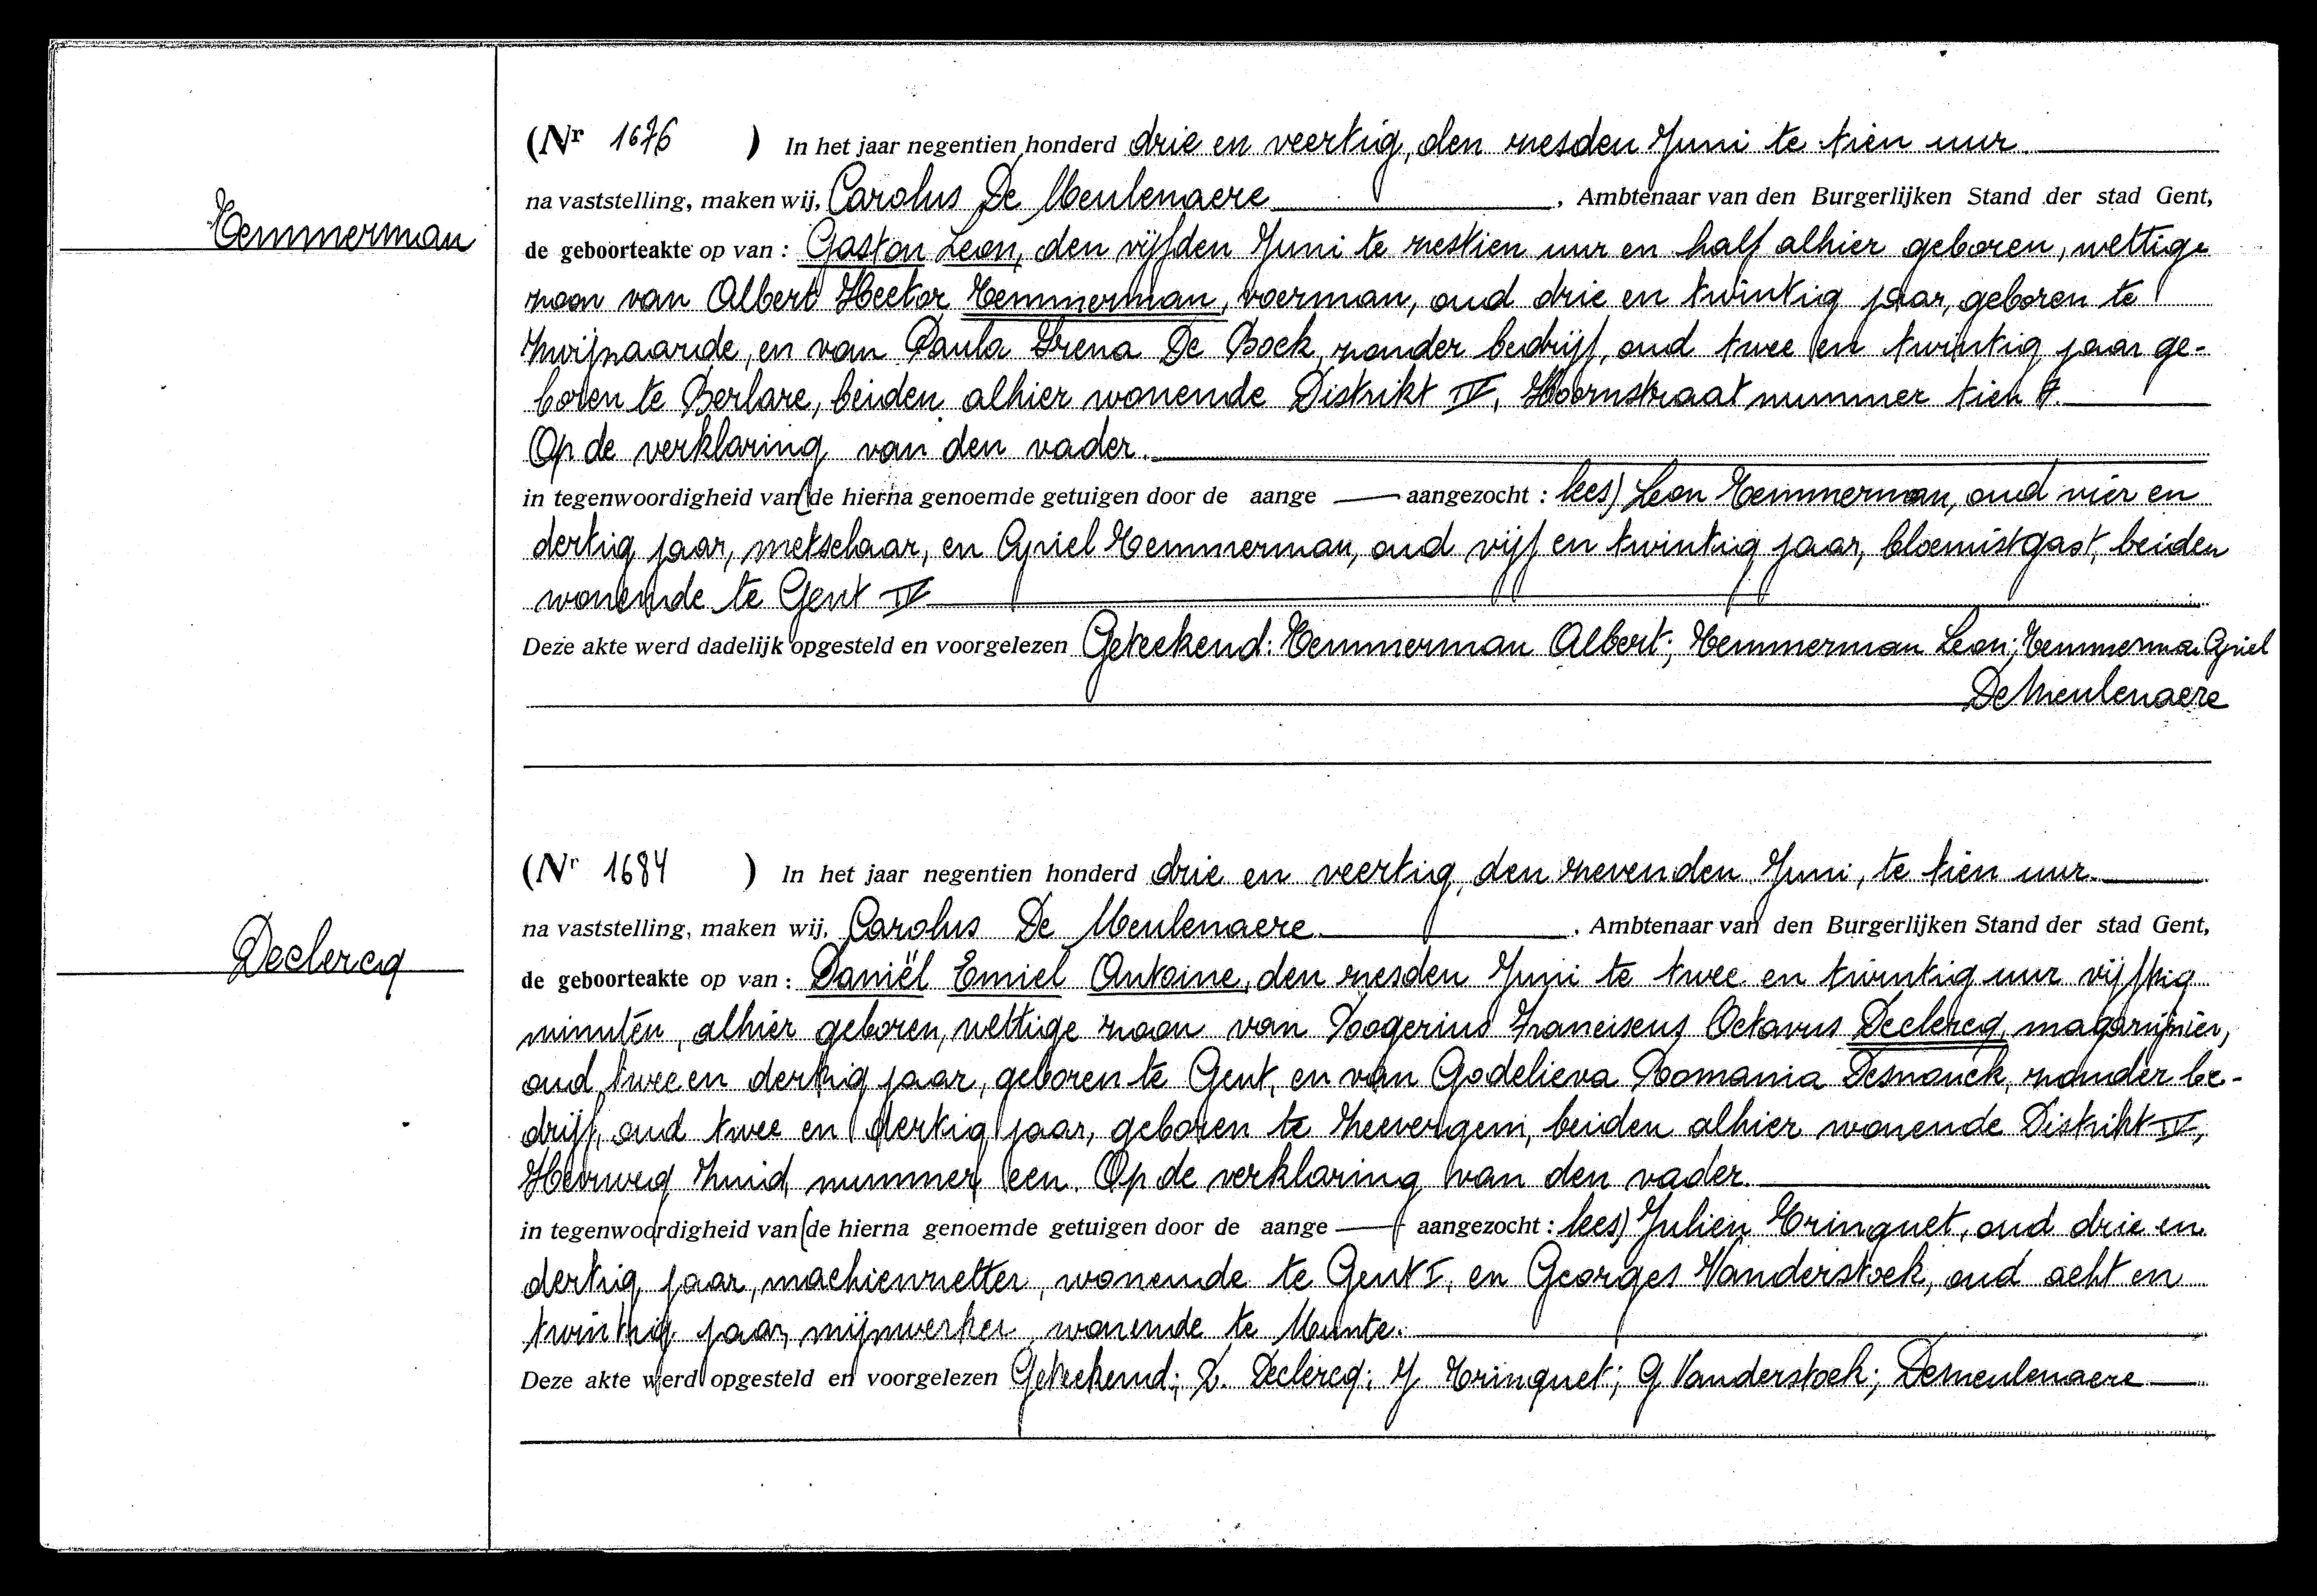 (Nr 1676 ) In het jaar negentien honderd drie en veertig, den zesden Juni te tien uur
Temmerman
na vaststelling, maken wij, Carolus De Meulenaere, Ambtenaar van den Burgerlijken Stand der stad Gent,
de geboorteakte op van : Gaston Leon, den vijfden Juni te zestien uur en half alhier geboren, wettige
zoon van Albert Hector Temmerman, voerman, oud drie en twintig jaar, geboren te
Zwijnaarde, en van Paula Irena De Bock, zonder bedrijf, oud twee en twintig jaar ge-
boren te Berlare, beiden alhier wonende Distrikt IV, Hoornstraat nummer tien
Op de verklaring van den vader.
in tegenwoordigheid van (de hierna genoemde getuigen door de aange — aangezocht : lees) Leon Temmerman, oud vier en
dertig jaar, metselaar, en Cyriel Temmerman, oud vijf en twintig jaar, bloemistgast, beiden
wonende te Gent IV
Deze akte werd dadelijk opgesteld en voorgelezen Geteekend: Temmerman Albert; Temmerman Leon; Temmerman Cyriel
De Meulenaere
(Nr 1684 ) In het jaar negentien honderd drie en veertig, den zevenden Juni, te tien uur
Declercq
na vaststelling, maken wij, Carolus De Meulenaere, Ambtenaar van den Burgerlijken Stand der stad Gent,
de geboorteakte op van : Daniël Emiel Antoine, den zesden Juni te twee en twintig uur vijftig
minuten, alhier geboren, wettige zoon van Rogerius Franciscus Octavus Declercq, magazijnier,
oud twee en dertig jaar, geboren te Gent, en van Godelieva Romania Desnouck, zonder be-
drijf, oud twee en dertig jaar, geboren te Zeevergem, beiden alhier wonende Distrikt IV,
Heirweg Zuid, nummer een. Op de verklaring van den vader.
in tegenwoordigheid van (de hierna genoemde getuigen door de aange — aangezocht : lees) Julien Trinquet, oud drie en
dertig jaar, machienzetter, wonende te Gent I, en Georges Vanderstoek, oud acht en
twintig jaar, mijnwerker, wonende te Munte.
Deze akte werd opgesteld en voorgelezen Geteekend; D. Declercq; J Trinquet; G Vanderstoek; Demeulenaere